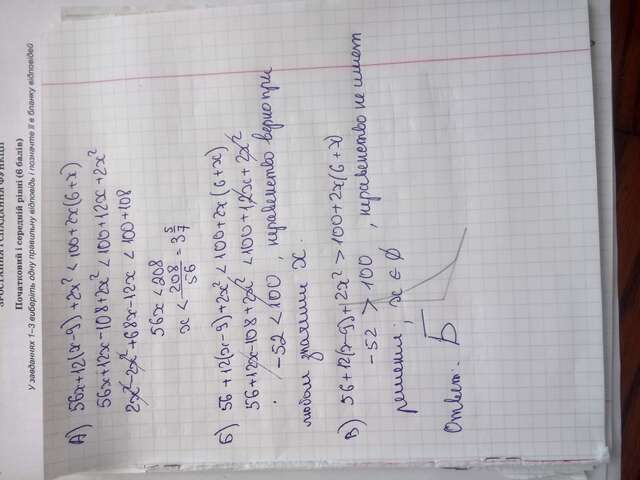 ЗРОСТАННЯ І СПАДАННЯ ФУНКЦІЇ
Початковий і середній рівні (6 балів)
У завданнях 1–3 виберіть одну правильну відповідь і позначте її в бланку відповідей
А) 56x+12(x-9)+2x²<100+2x(6+x)
56x+12x-108+2x²<100+12x+2x²
2x²-2x²+68x-12x<100+108
56x<208
x<208/56=3 5/7
Б) 56+12(x-9)+2x²<100+2x(6+x)
56+12x-108+2x²<100+12x+2x²
-52<100, неравенство верно при
любом значении x.
В) 56+12(x-9)+2x²>100+2x(6+x)
-52>100, неравенство не имеет
решений; x∈∅
Ответ: Б